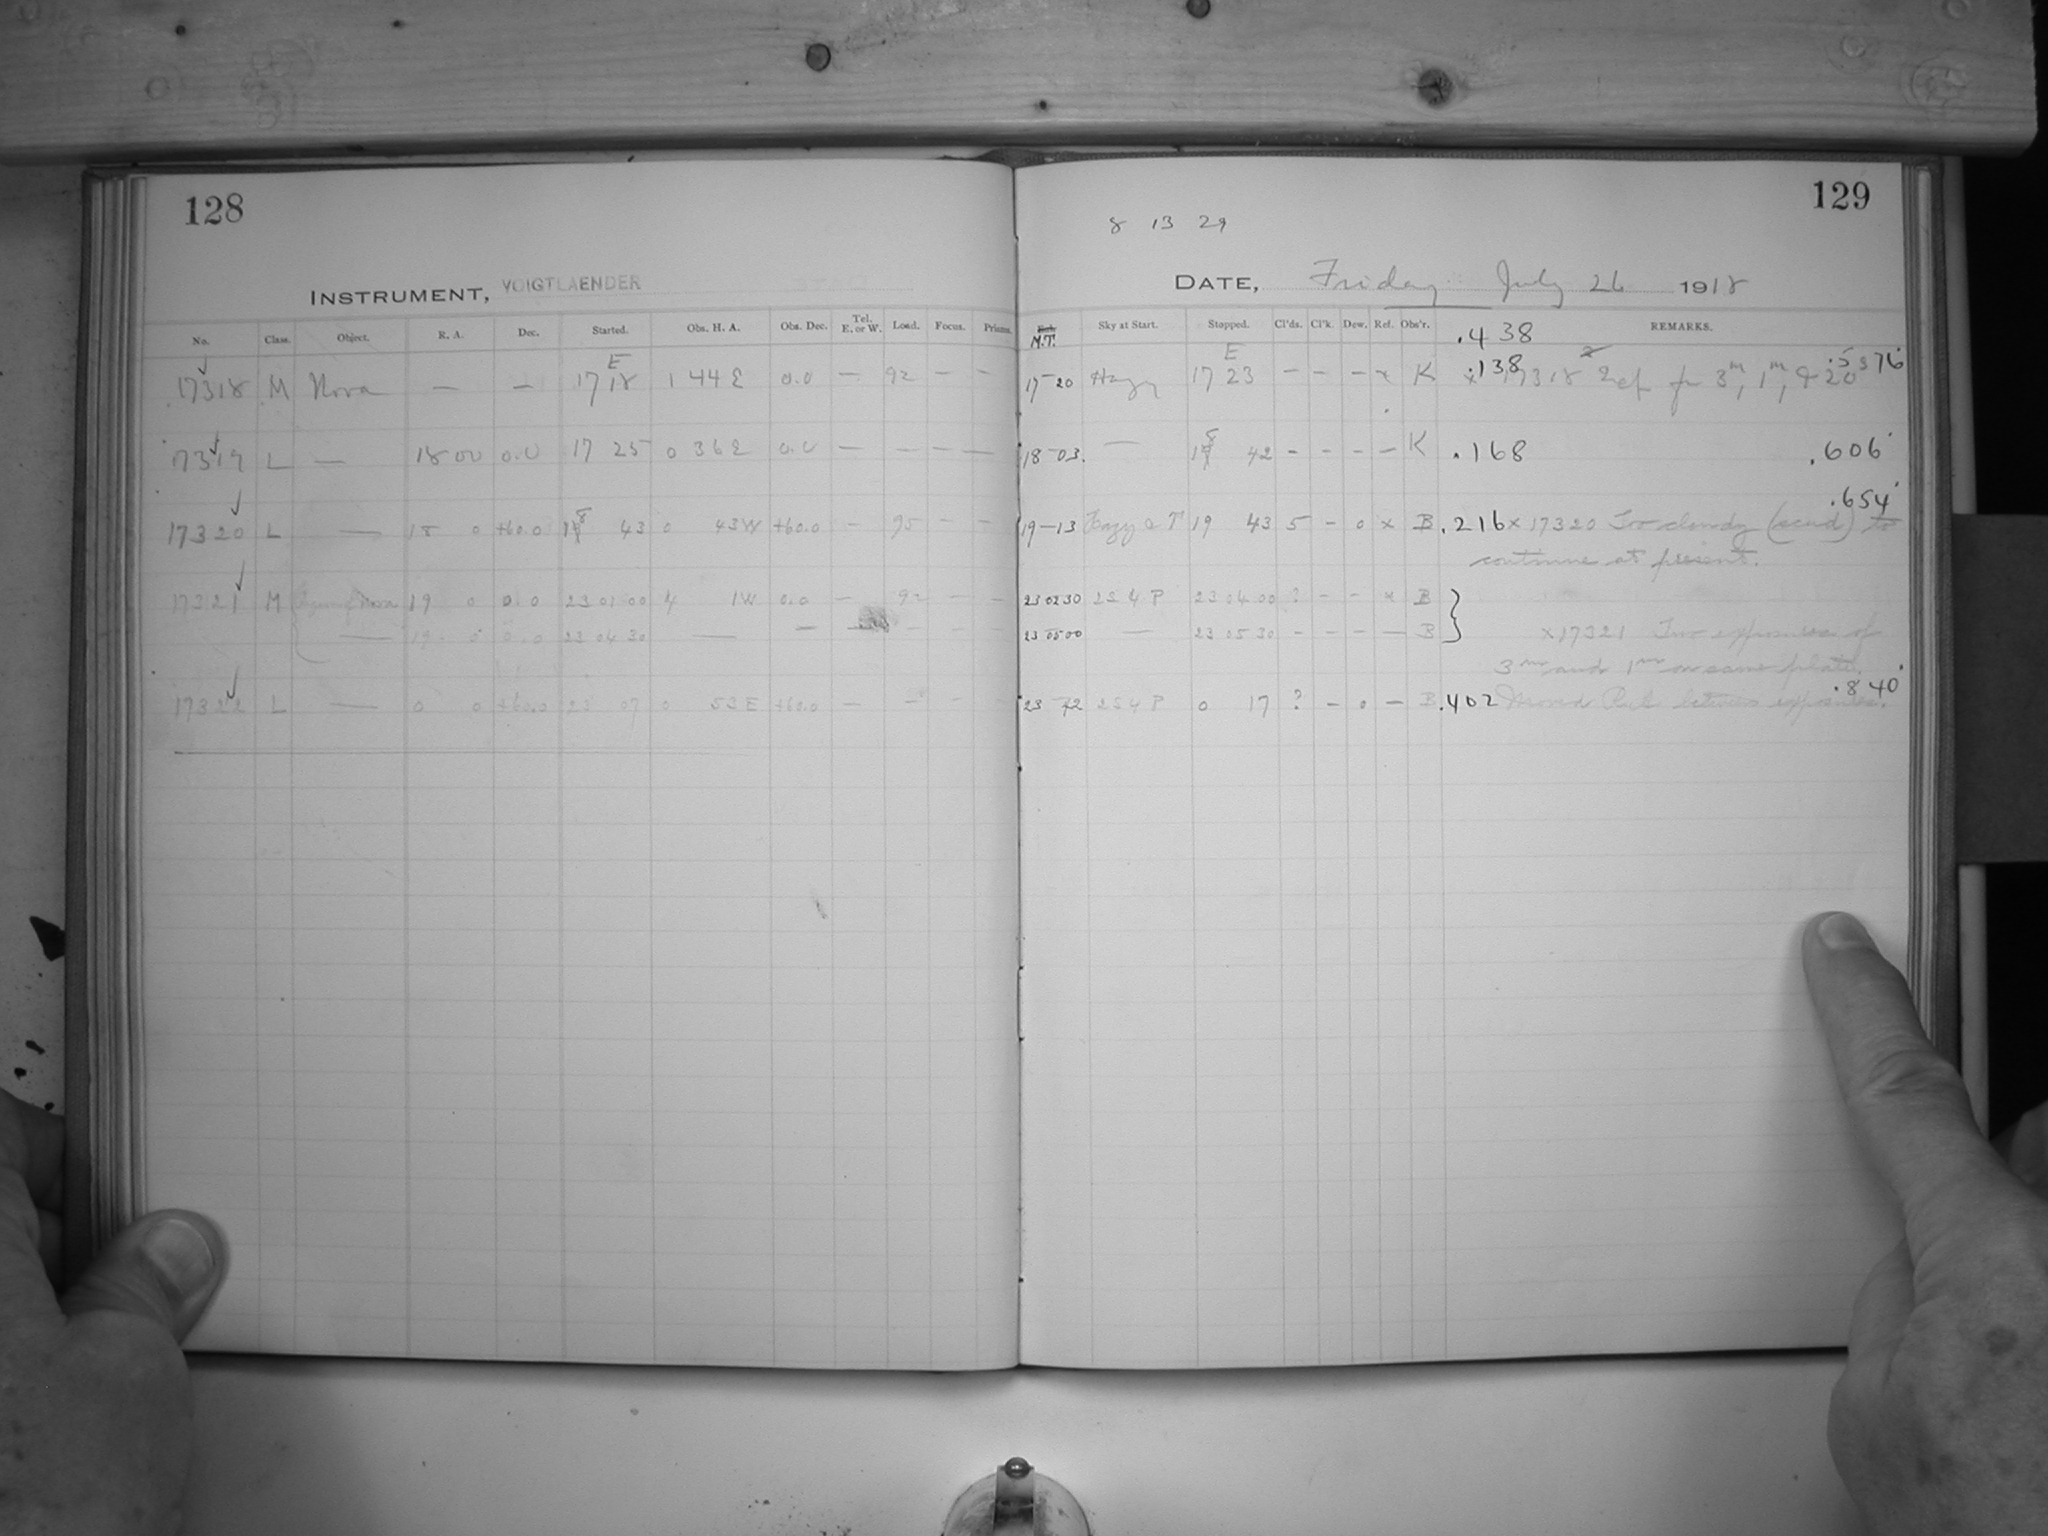 128
129
8 13 29
INSTRUMENT, VOIGTLAENDER
DATE, Friday July 26 1918
No. Class. Object. R. A. Dec. Started. Obs. H. A. Obs. Dec. Tel. E. or W. Load. Focus. Prisms. M.T. Sky at Start. Stopped. Cl'ds. Cl'k. Dew. Ref. Obs'r. .438 REMARKS.
17318 M Nova — — E 17 18 1 44 E 0.0 — 92 — — 17-20 Hazy E 17 23 — — — x K .138 x 17318 for 3m, 1m, & 20s .576
17319 L — 18 00 0.0 17 25 0 36 E 0.0 — — — — 18-03. — 18 42 - - - — K .168 .606
17320 L — 18 0 +60.0 18 43 0 43 W +60.0 — 95 — — 19-13 19 43 5 - 0 x B .216 x 17320 Too cloudy (scud) to .654
continue at present.
17321 M 19 0 0.0 23 01 00 4 1 W 0.0 — 92 — — 23 02 30 2S4P 23 04 00 ? - - x B
— 19 0 0.0 23 04 30 — — — — — — 23 05 00 — 23 05 30 - - - — B x 17321 Two exposures of
3m and 1m on same plate.
17322 L — 0 0 +60.0 23 07 0 53 E +60.0 — — — — 23 42 2S4P 0 17 ? - 0 — B .402 Moved between exposures. .840